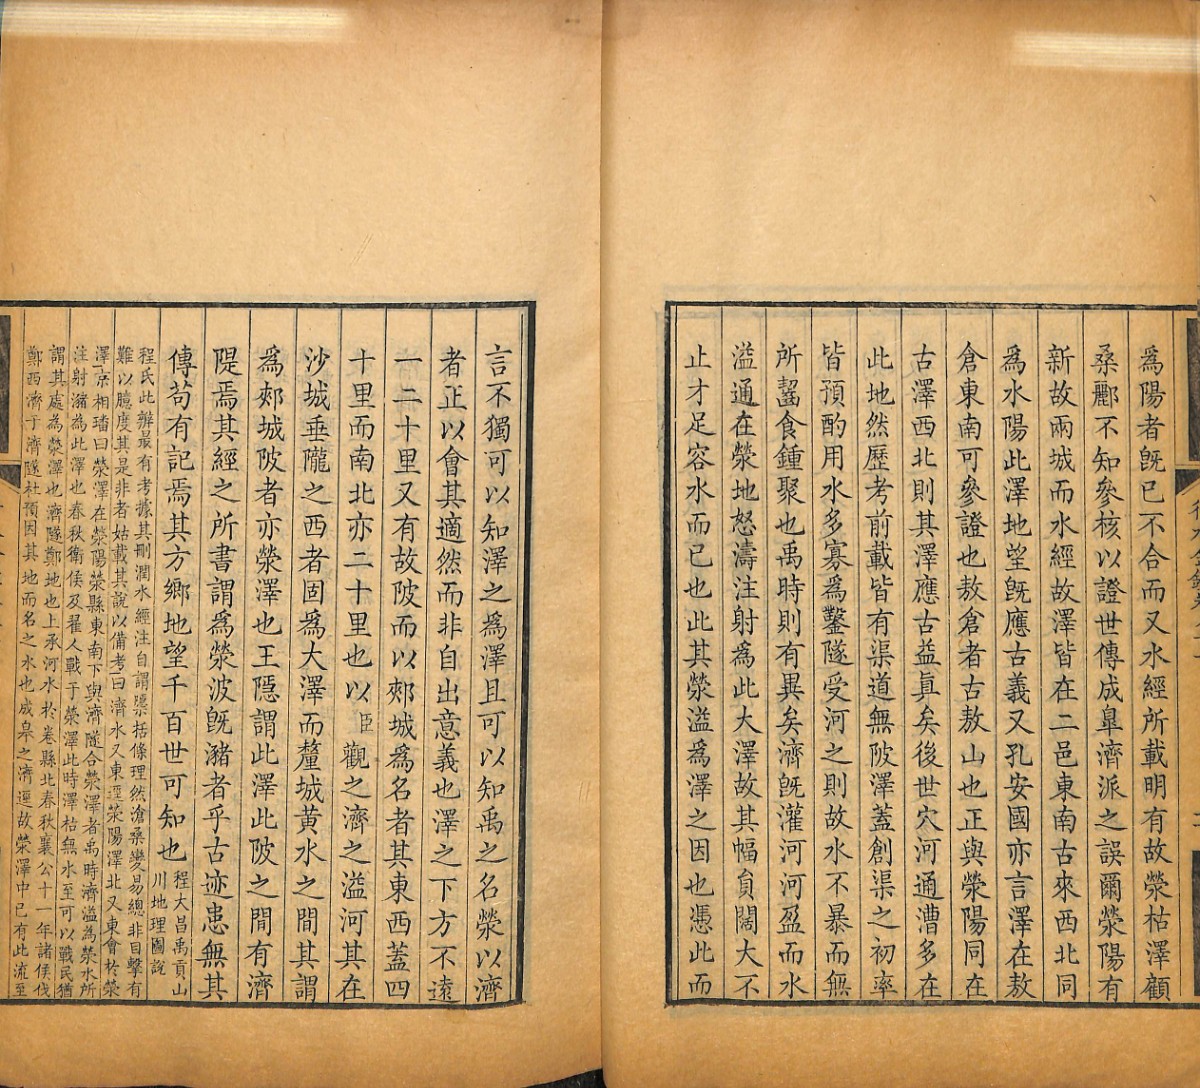 為陽者旣已不合而又水經所載明有故滎枯澤顧
桑酈不知參核以證世傳成臯濟派之誤爾滎陽有
新故兩城而水經故澤皆在二邑東南古來西北同
為水陽此澤地望旣應古義又孔安國亦言澤在敖
倉東南可參證也敖倉者古敖山也正與滎陽同在
古澤西北則其澤應古益眞矣後世穴河通漕多在
此地然歷考前載皆有渠道無陂澤蓋創渠之初率
皆預酌用水多寡為鑿隧受河之則故水不暴而無
所齧食鍾聚也禹時則有異矣濟旣灌河河盈而水
溢通在滎地怒濤注射為此大澤故其幅負闊大不
止才足容水而已也此其滎溢為澤之因也憑此而
言不獨可以知澤之為澤且可以知禹之名滎以濟
者正以會其適然而非自出意義也澤之下方不遠
一二十里又有故陂而以郟城為名者其東西蓋四
十里而南北亦二十里也以臣觀之濟之溢河其在
沙城垂隴之西者固為大澤而釐城黃水之間其謂
為郟城陂者亦滎澤也王隱謂此澤此陂之間有濟
隄焉其經之所書謂為滎波旣瀦者乎古迹患無其
傳苟有記焉其方鄉地望千百世可知也程大昌禹貢山
川地理圖說
程氏此辨最有考據其刪潤水經注自謂檃栝條理然滄桑變易總非目擊有
難以臆度其是非者姑載其說以備考曰濟水又東逕滎陽澤北又東會於滎
澤京相璠曰滎澤在滎陽滎縣東南下與濟隧合滎澤者禹時濟溢為滎水所
注射瀦為此澤也春秋衛侯及翟人戰于滎澤此時澤枯無水至可以戰民猶
謂其處為滎澤也濟隧鄭地也上承河水於卷縣北春秋襄公十一年諸侯伐
鄭西濟于濟隧杜預因其地而名之水也成皋之濟逕故滎澤中已有此流至